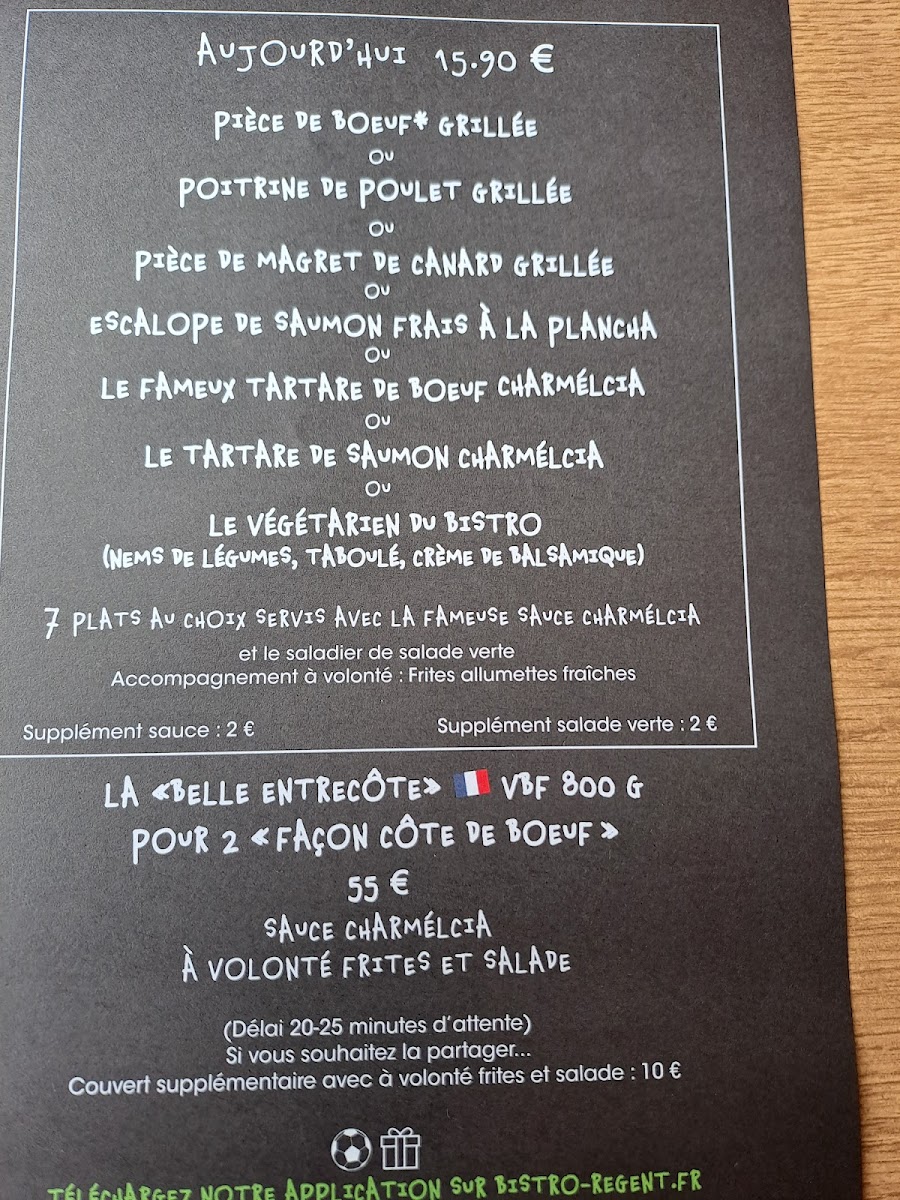 AUJOURD'HUI 15.90 €
PIÈCE DE BOEUF* GRILLÉE
OU
POITRINE DE POULET GRILLÉE
OU
PIÈCE DE MAGRET DE CANARD GRILLÉE
OU
ESCALOPE DE SAUMON FRAIS À LA PLANCHA
OU
LE FAMEUX TARTARE DE BOEUF CHARMÉLCIA
OU
LE TARTARE DE SAUMON CHARMÉLCIA
OU
LE VÉGÉTARIEN DU BISTRO
(NEMS DE LÉGUMES, TABOULÉ, CRÈME DE BALSAMIQUE)
7 PLATS AU CHOIX SERVIS AVEC LA FAMEUSE SAUCE CHARMÉLCIA
et le saladier de salade verte
Accompagnement à volonté : Frites allumettes fraîches
Supplément sauce : 2 € Supplément salade verte : 2 €
LA «BELLE ENTRECÔTE» VBF 800 G
POUR 2 « FAÇON CÔTE DE BOEUF »
55 €
SAUCE CHARMÉLCIA
À VOLONTÉ FRITES ET SALADE
(Délai 20-25 minutes d'attente)
Si vous souhaitez la partager...
Couvert supplémentaire avec à volonté frites et salade : 10 €
TÉLÉCHARGEZ NOTRE APPLICATION SUR BISTRO-REGENT.FR